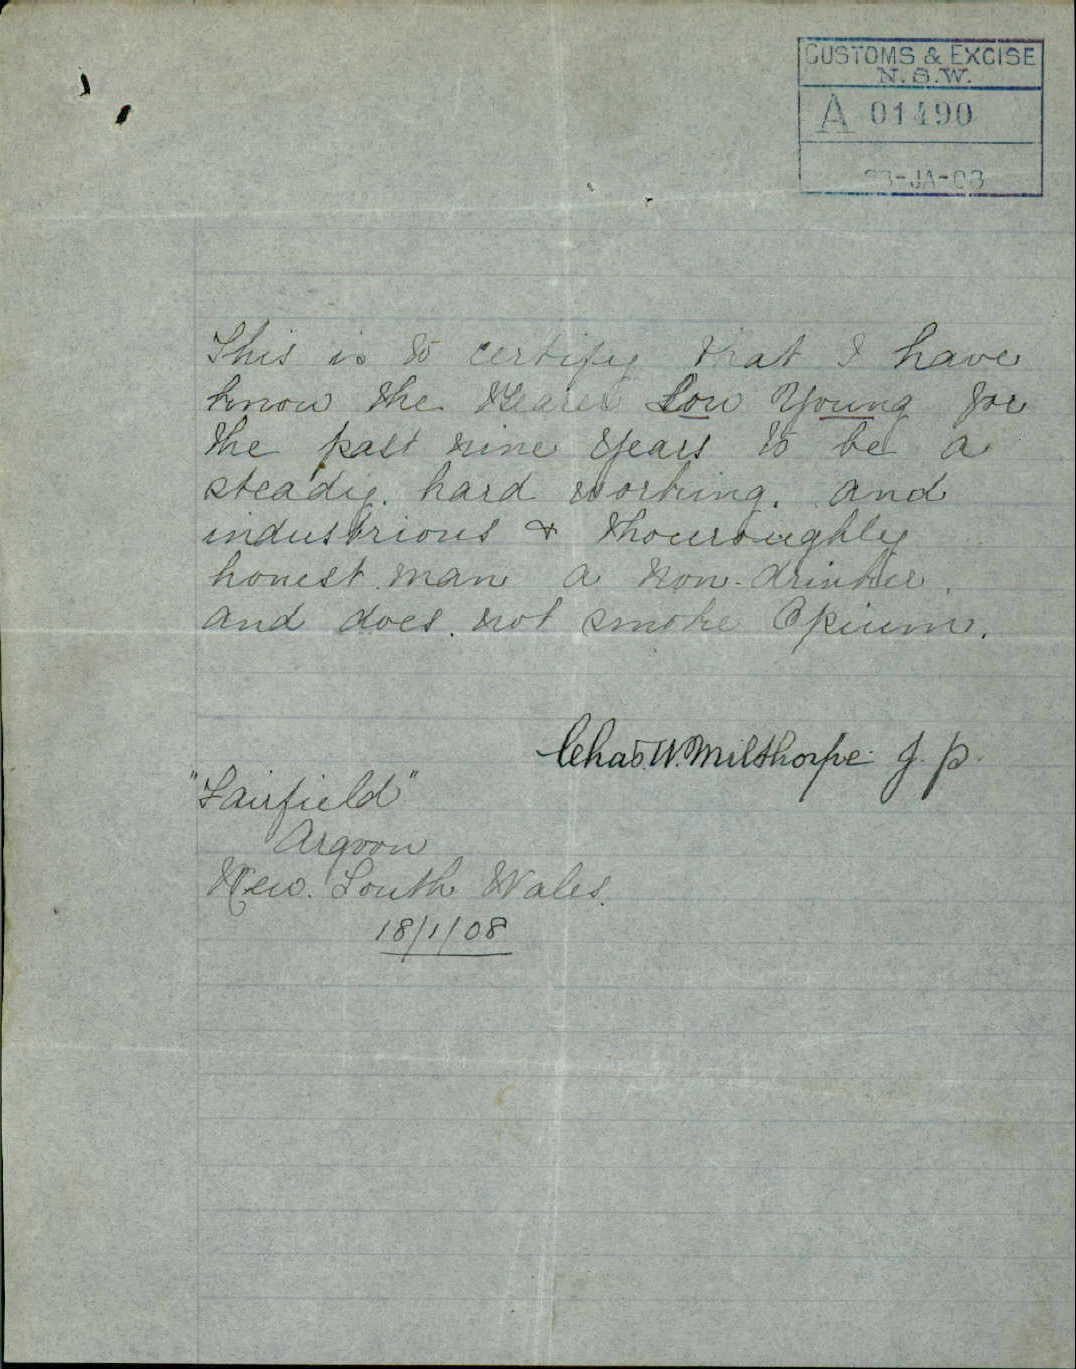 CUSTOMS & EXCISE
N.S.W.
A 01490
23-JA-08
This is to certify that I have
know the Bearer Low Young for
the past nine years to be a
steady. hard working. and
industrious & thouroughly
honest man a non-drinker.
and does. not smoke Opium.
Chas. W. Milthorpe J.P.
"Fairfield"
Argoon
New. South Wales.
18/1/08